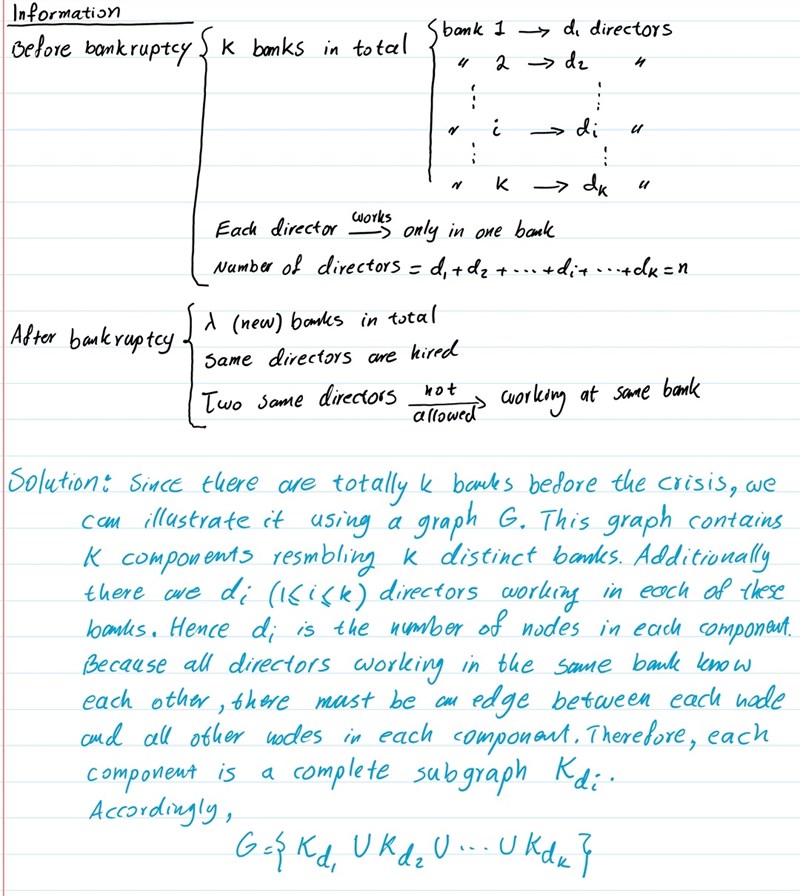 Information
Before bankruptcy { K banks in total { bank 1 → d₁ directors
" 2 → d₂ "
⋮ ⋮
" i → dᵢ "
⋮ ⋮
" K → d_K "
Each director works→ only in one bank
Number of directors = d₁+d₂+⋯+dᵢ+⋯+d_K=n
After bankruptcy { λ (new) banks in total
Same directors are hired
Two same directors not allowed→ working at same bank
Solution: Since there are totally k banks before the crisis, we
can illustrate it using a graph G. This graph contains
K components resmbling k distinct banks. Additionally
there are dᵢ (1≤i≤k) directors working in each of these
banks. Hence dᵢ is the number of nodes in each component.
Because all directors working in the same bank know
each other, there must be an edge between each node
and all other nodes in each component. Therefore, each
component is a complete subgraph K_dᵢ.
Accordingly,
G={K_d₁ ∪ K_d₂ ∪ ⋯ ∪ K_d_k}